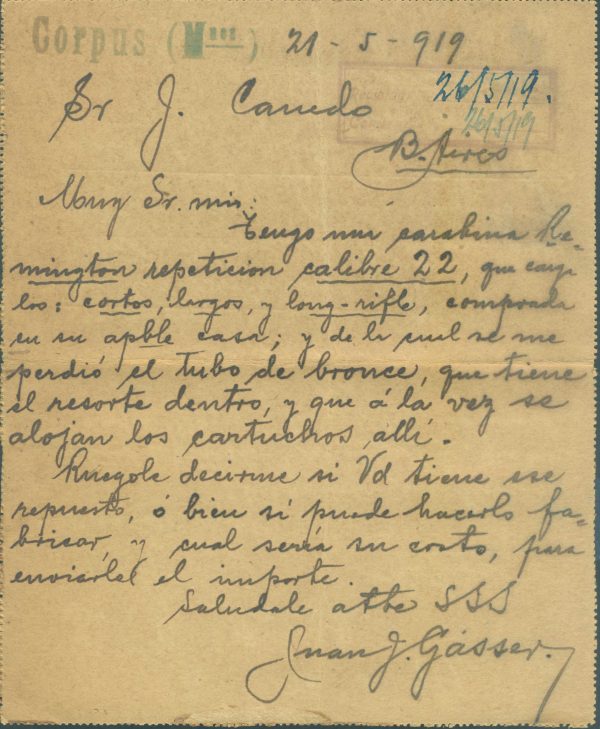 Corpus (Mnes) 21-5-919
26/5/19.
26/5/19
Sr J. Canedo
B. Aires
Muy Sr. mio:
Tengo una carabina Re-
mington repeticion calibre 22, que carga
los: cortos, largos, y long-rifle, comprada
en su apble casa; y de la cual se me
perdió el tubo de bronce, que tiene
el resorte dentro, y que á la vez se
alojan los cartuchos allí.
Ruegole decirme si Vd tiene ese
repuesto, ó bien si puede hacerlo fa=
bricar, y cual sería su costo, para
enviarle el importe.
Saludale atte SSS
Juan J. Gásser.